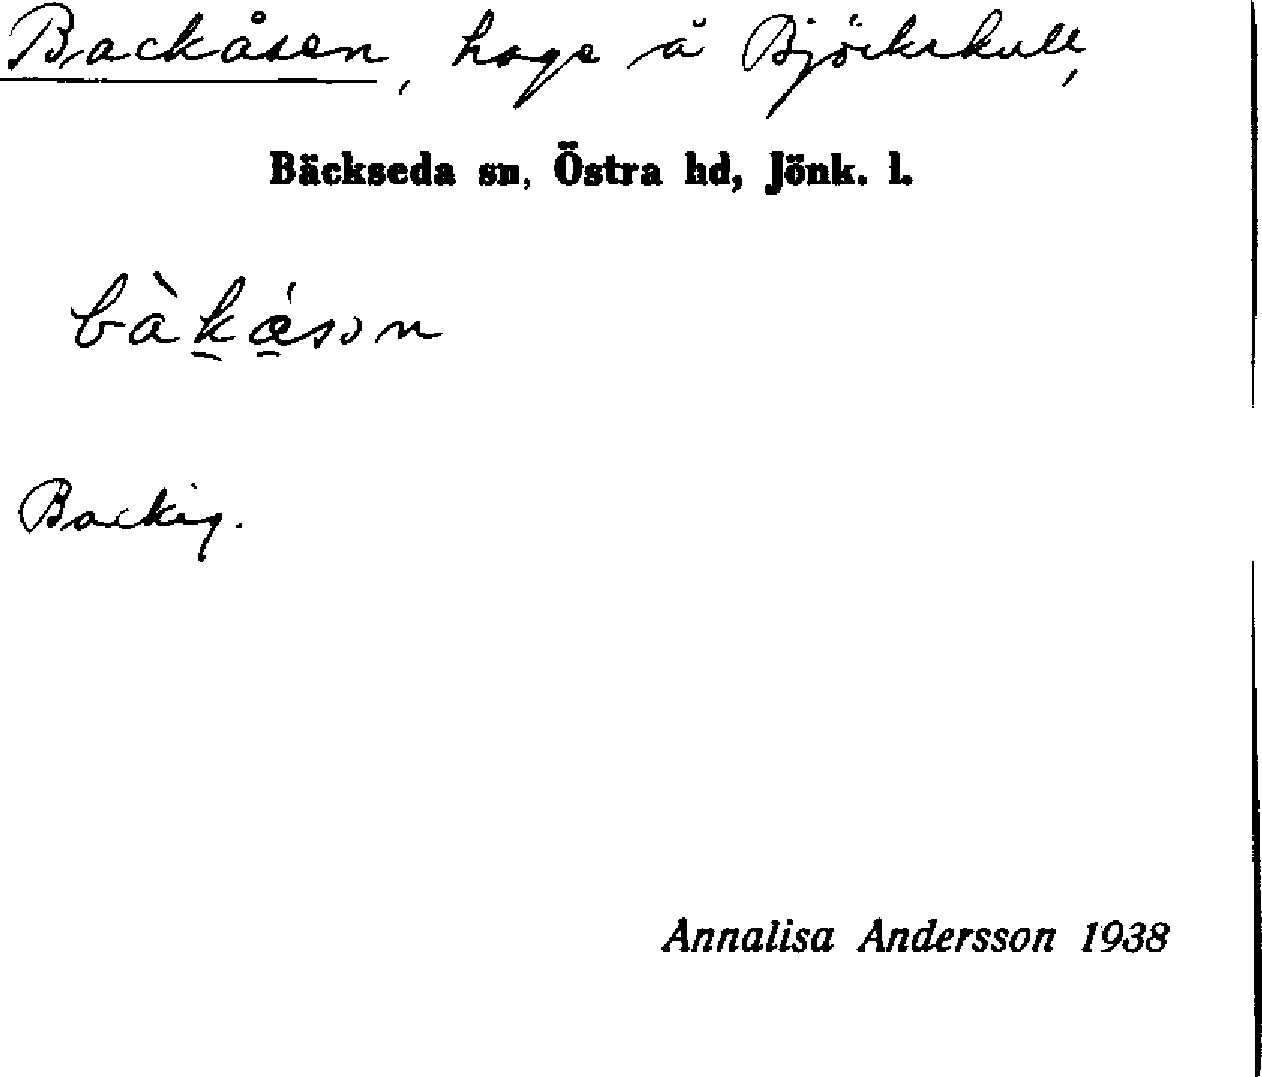 Backåsen, hage å Björkekull,
Bäckseda sn, Östra hd, Jönk. l.
bàk̲ǽ̲sən
Backig.
Annalisa Andersson 1938